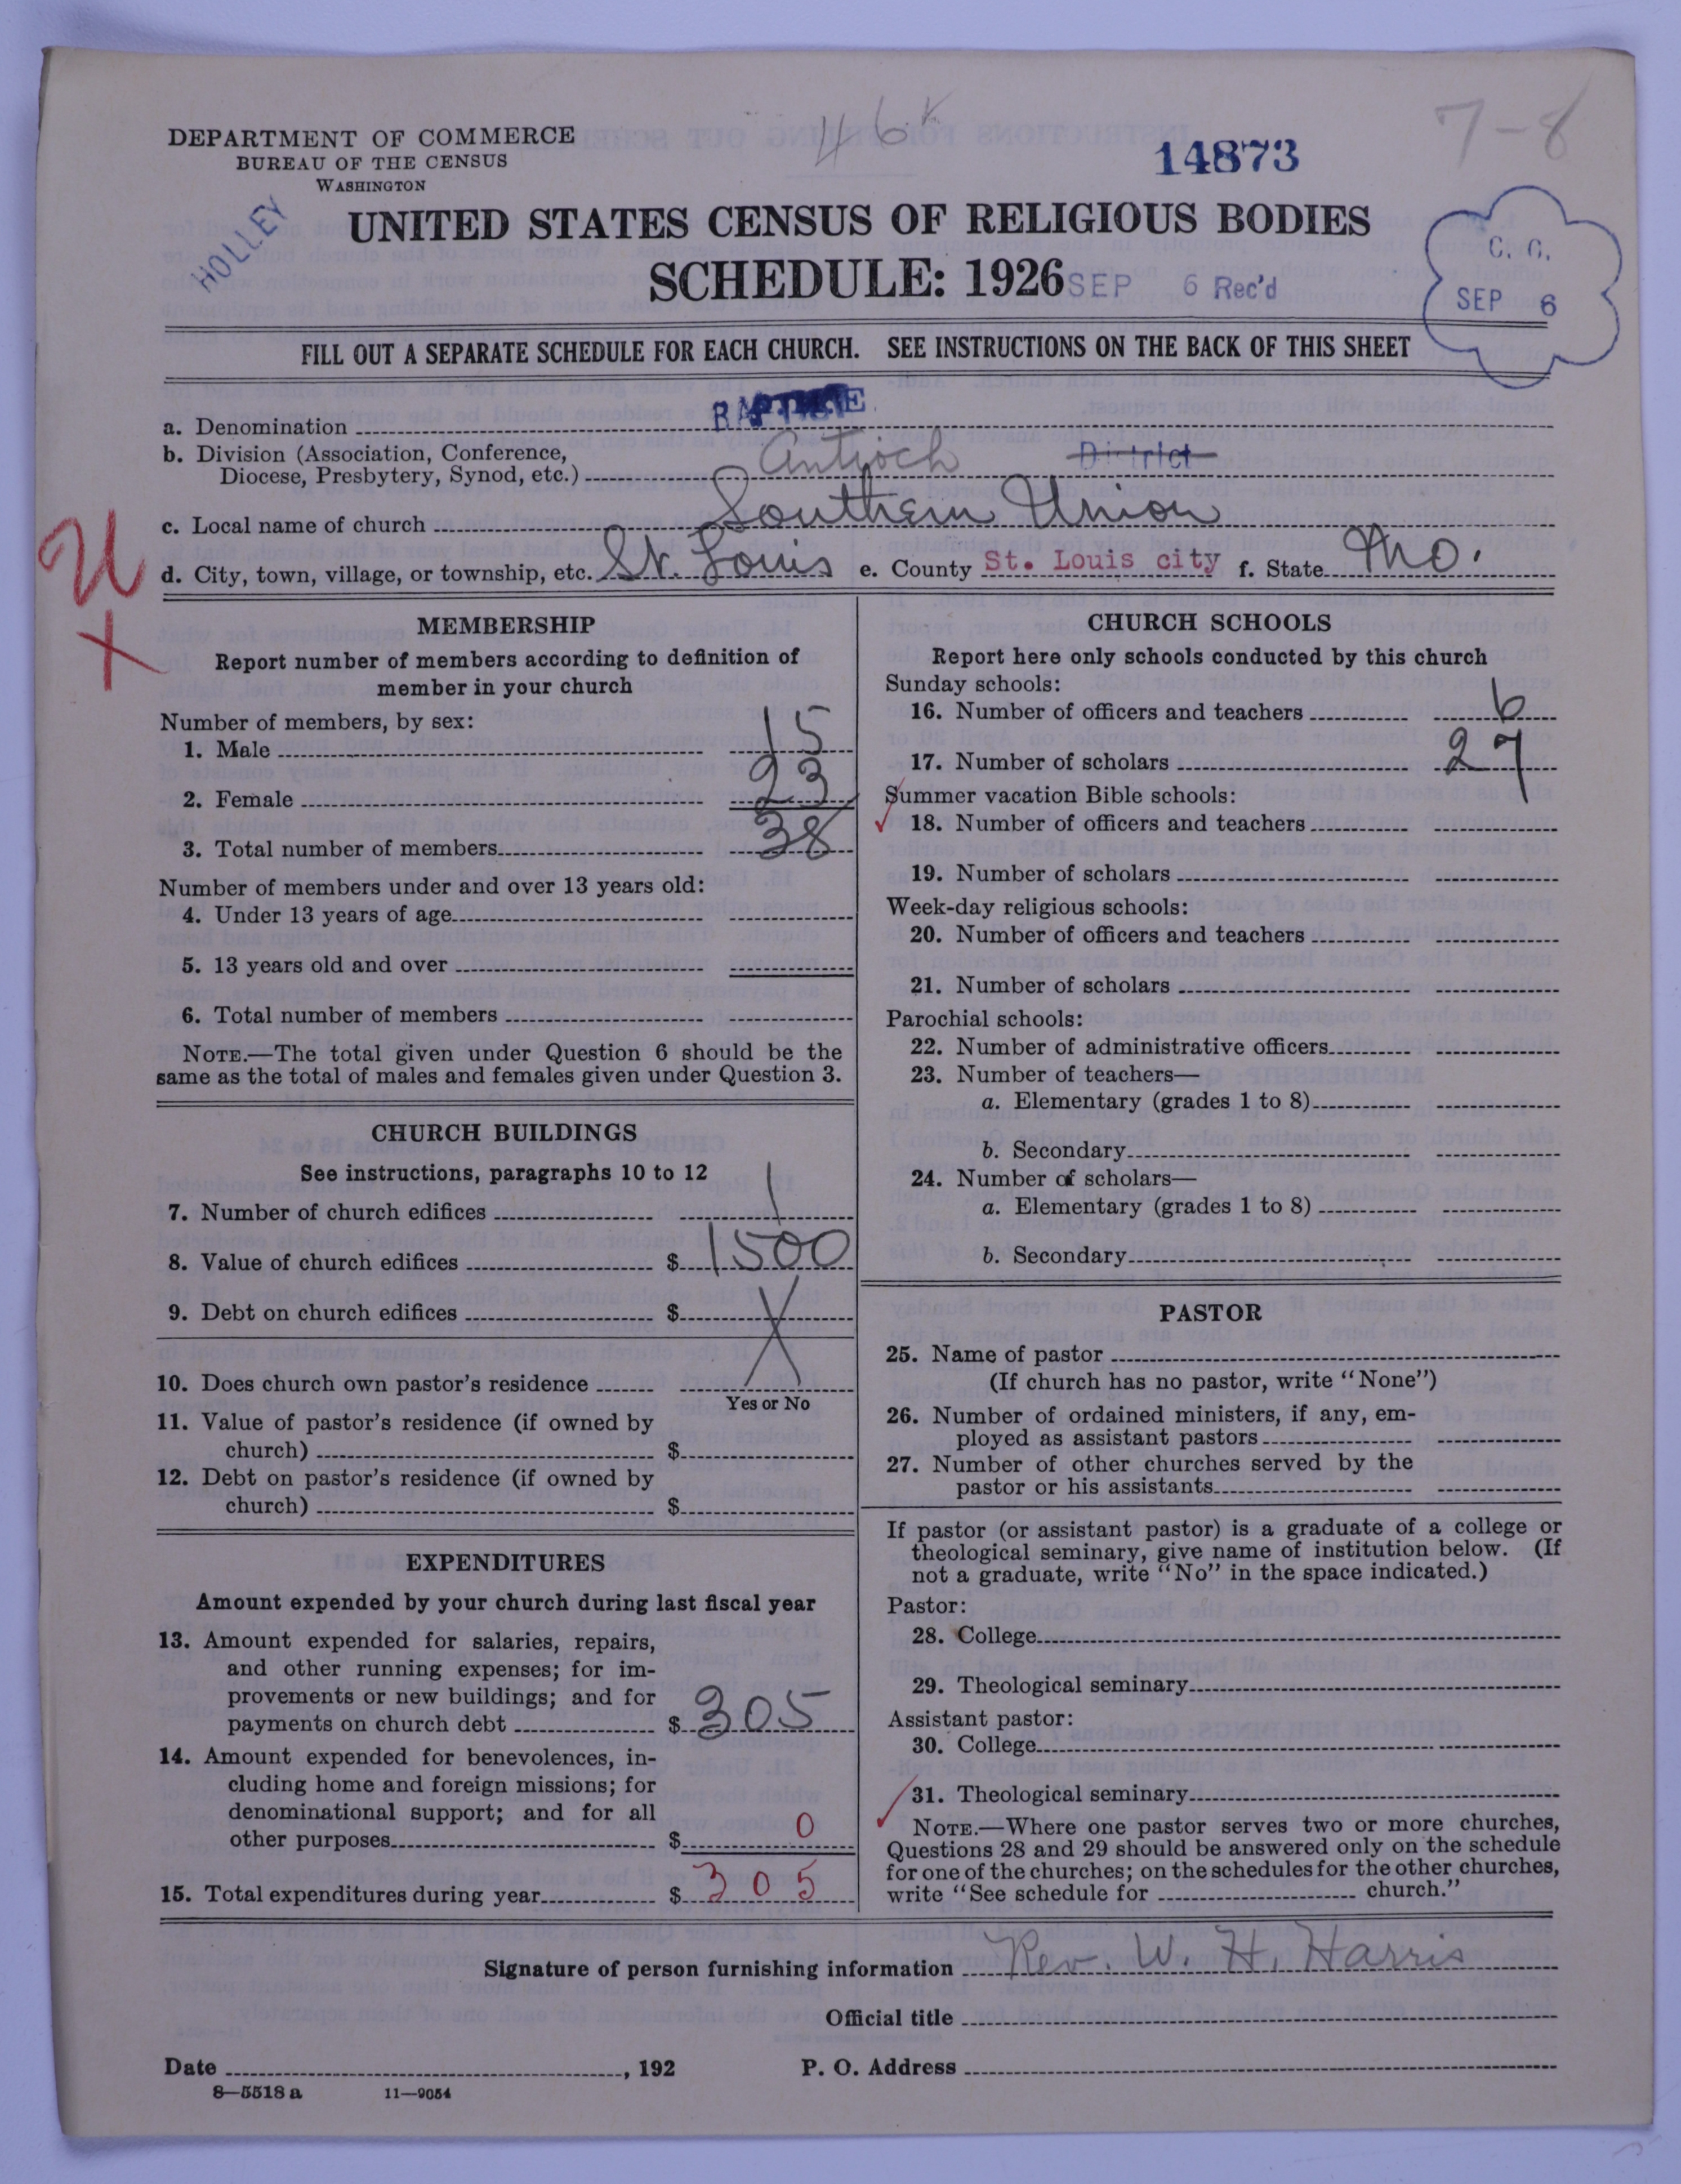 DEPARTMENT OF COMMERCE
BUREAU OF THE CENSUS
WASHINGTON
46
14873
7-8
HOLLEY
UNITED STATES CENSUS OF RELIGIOUS BODIES
SCHEDULE: 1926
SEP 6 Rec'd
C. C.
SEP 6
FILL OUT A SEPARATE SCHEDULE FOR EACH CHURCH. SEE INSTRUCTIONS ON THE BACK OF THIS SHEET
a. Denomination BAPTIST
b. Division (Association, Conference,
Diocese, Presbytery, Synod, etc.) Antioch District
c. Local name of church Southern Union
d. City, town, village, or township, etc. St. Louis e. County St. Louis city f. State Mo.
MEMBERSHIP
Report number of members according to definition of
member in your church
Number of members, by sex:
1. Male 15
2. Female 23
3. Total number of members 38
Number of members under and over 13 years old:
4. Under 13 years of age
5. 13 years old and over
6. Total number of members
NOTE.—The total given under Question 6 should be the
same as the total of males and females given under Question 3.
CHURCH BUILDINGS
See instructions, paragraphs 10 to 12
7. Number of church edifices 1
8. Value of church edifices $ 1500
9. Debt on church edifices $ X
10. Does church own pastor's residence
Yes or No
11. Value of pastor's residence (if owned by
church) $
12. Debt on pastor's residence (if owned by
church) $
EXPENDITURES
Amount expended by your church during last fiscal year
13. Amount expended for salaries, repairs,
and other running expenses; for im-
provements or new buildings; and for
payments on church debt $ 305
14. Amount expended for benevolences, in-
cluding home and foreign missions; for
denominational support; and for all
other purposes $ 0
15. Total expenditures during year $ 305
CHURCH SCHOOLS
Report here only schools conducted by this church
Sunday schools:
16. Number of officers and teachers 6
17. Number of scholars 27
Summer vacation Bible schools:
18. Number of officers and teachers
19. Number of scholars
Week-day religious schools:
20. Number of officers and teachers
21. Number of scholars
Parochial schools:
22. Number of administrative officers
23. Number of teachers—
a. Elementary (grades 1 to 8)
b. Secondary
24. Number of scholars—
a. Elementary (grades 1 to 8)
b. Secondary
PASTOR
25. Name of pastor
(If church has no pastor, write "None")
26. Number of ordained ministers, if any, em-
ployed as assistant pastors
27. Number of other churches served by the
pastor or his assistants
If pastor (or assistant pastor) is a graduate of a college or
theological seminary, give name of institution below. (If
not a graduate, write "No" in the space indicated.)
Pastor:
28. College
29. Theological seminary
Assistant pastor:
30. College
31. Theological seminary
NOTE.—Where one pastor serves two or more churches,
Questions 28 and 29 should be answered only on the schedule
for one of the churches; on the schedules for the other churches,
write "See schedule for church."
Signature of person furnishing information Rev. W. H. Harris
Official title
Date , 192 P. O. Address
8—5518 a 11—9054